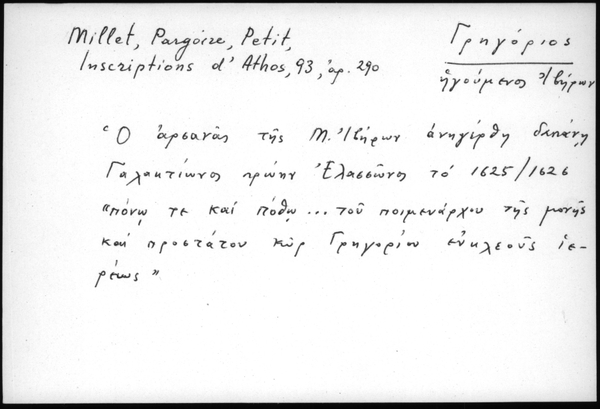 Millet, Pargoire, Petit,
Inscriptions d'Athos, 93, ἀρ. 290
Γρηγόριος
ἡγούμενος Ἰβήρων
Ὁ ἀρσανᾶς τῆς Μ. Ἰβήρων ἀνηγέρθη δαπάνῃ
Γαλακτίωνος πρώην Ἐλασσῶνος τό 1625/1626
"πόνῳ τε καί πόθῳ ... τοῦ ποιμενάρχου τῆς μονῆς
καί προστάτου κύρ Γρηγορίου εὐκλεοῦς ἱε-
ρέως"